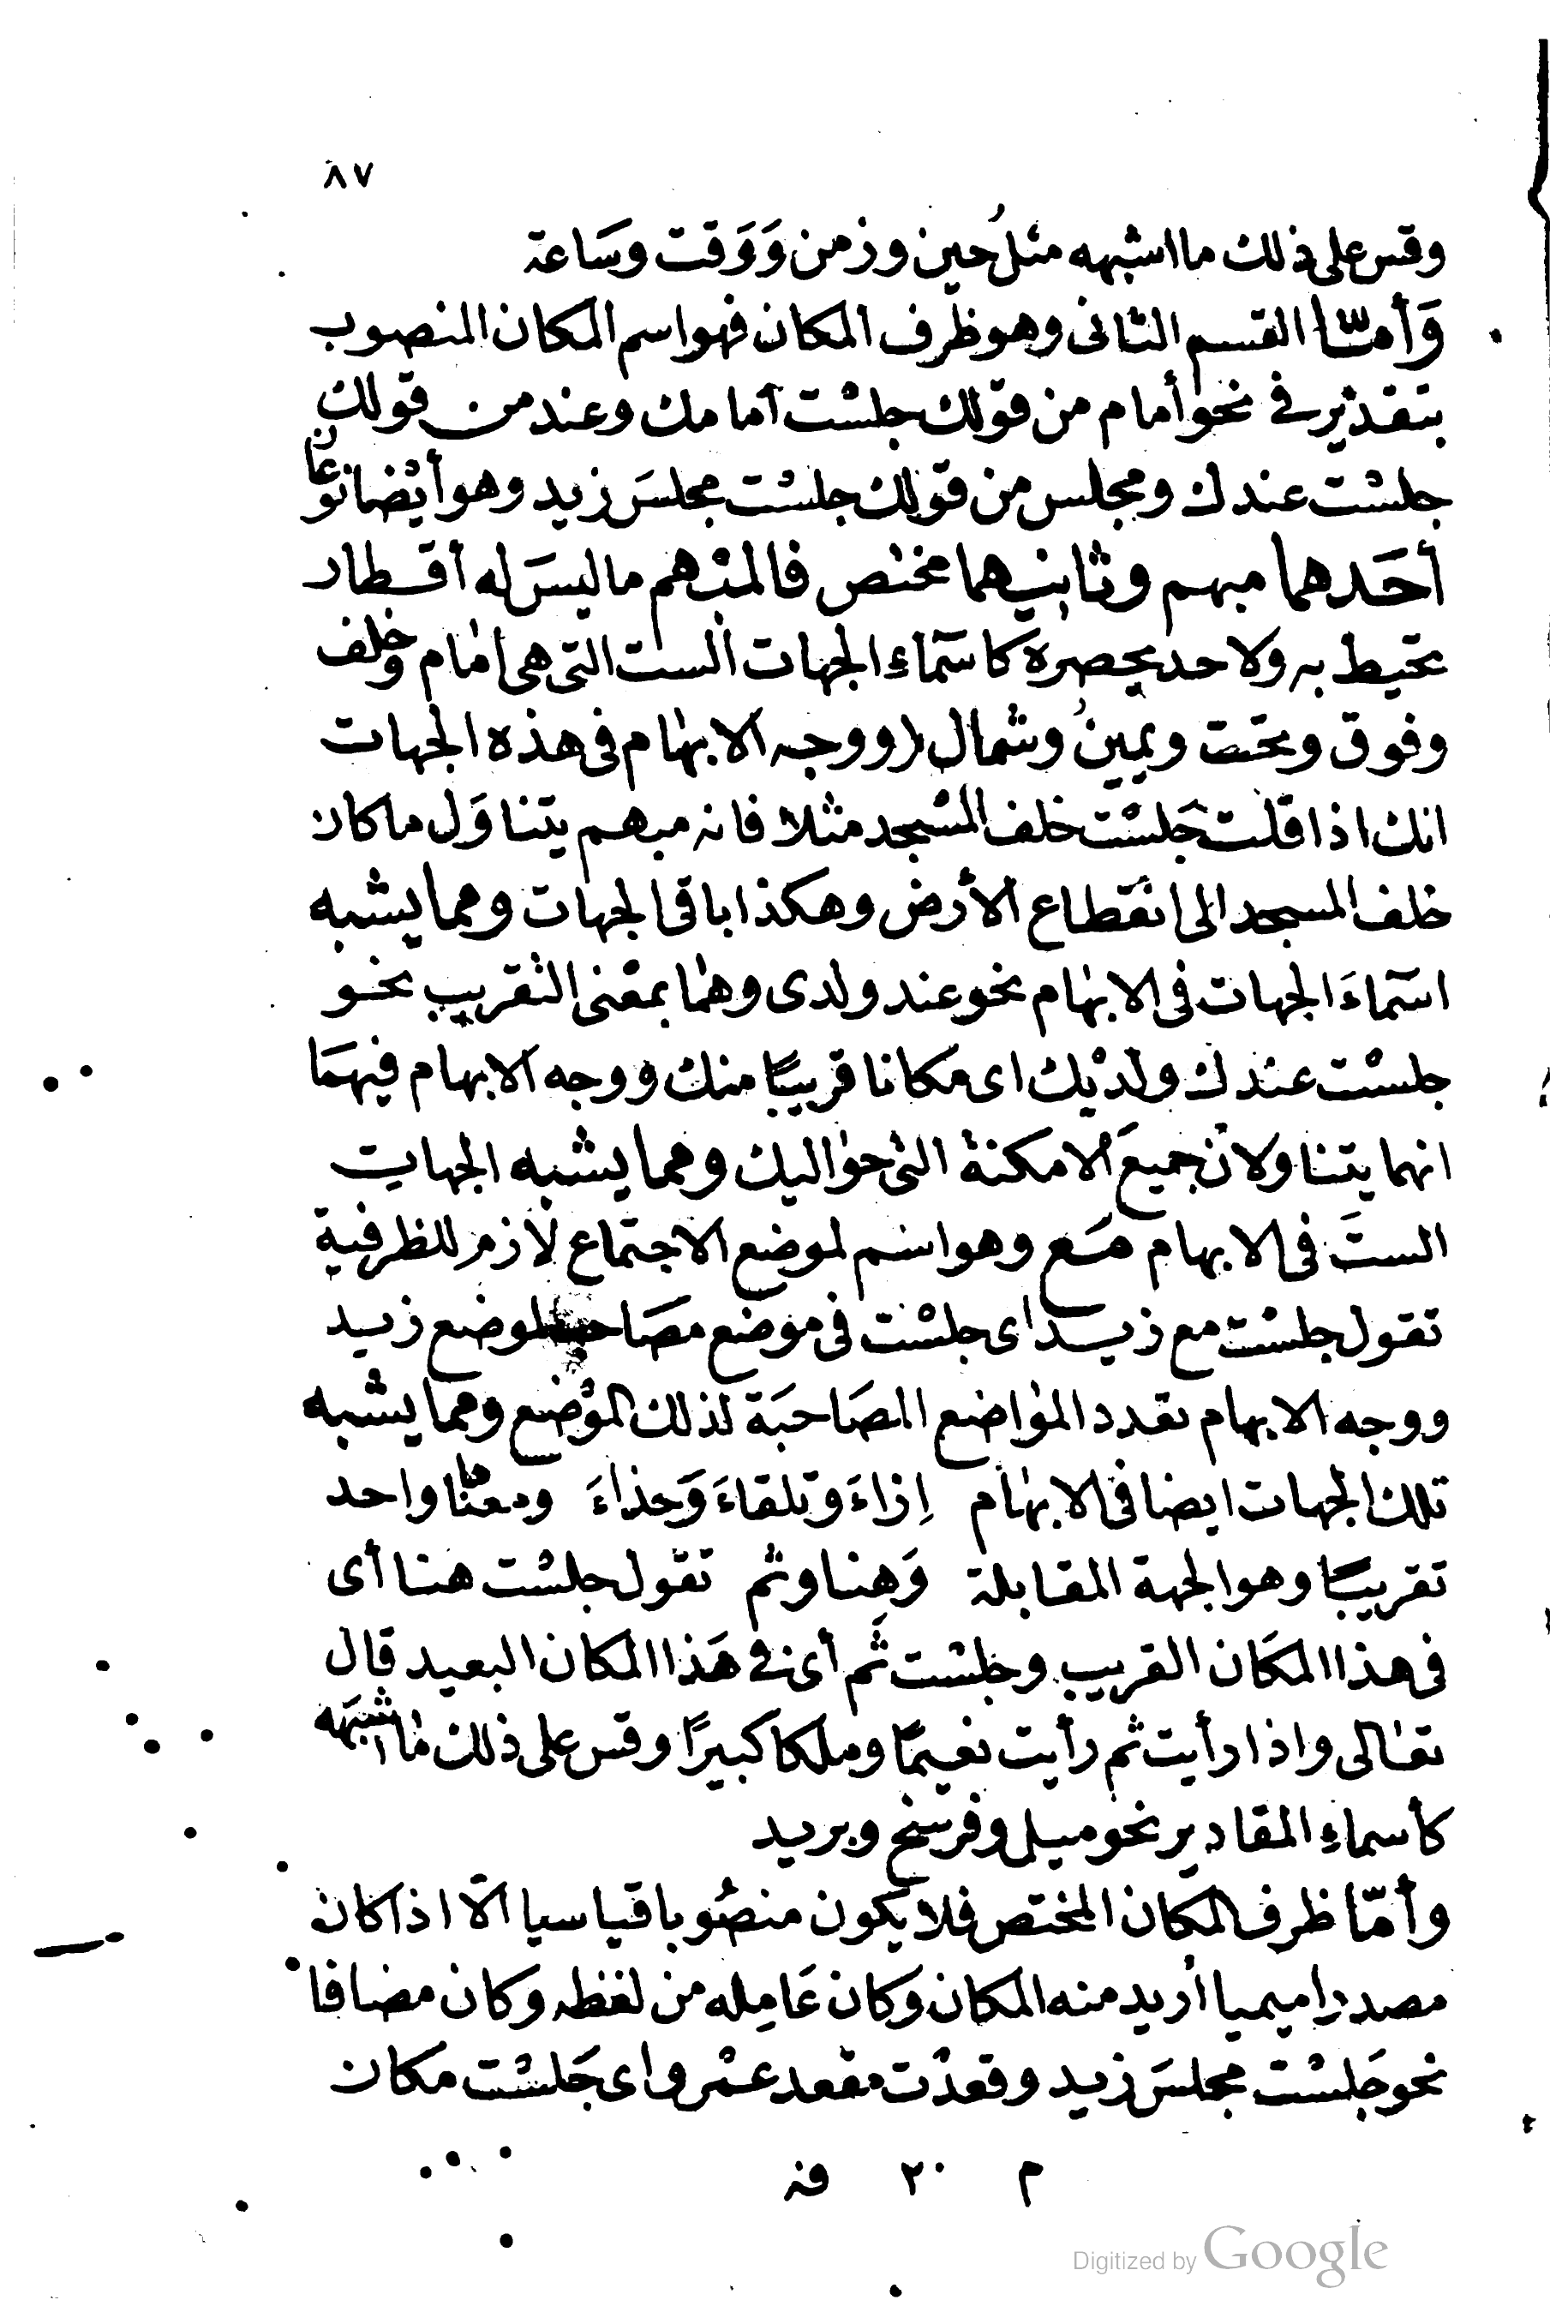 ٨٧
وقس على ذلك ما اشبهه مثل حين وزمن وَوَقت وسَاعة
وَأمّا القسم الثانى وهو ظرف المكان فهو اسم المكان المنصوب
بتقدير فى نحو أمام من قولك جلست أمامك وعند من قولك
جلست عندك ومجلس من قولك جلست مجلسَ زيد وهو أيضا نوعان
أحَدهما مبهم وثانيهما مختص فالمبْهم ما ليسَ له أقطار
تحيط به ولا حد يحصره كاسمآء الجهات الست التى هى امام وخلف
وفوق وتحت ويمين وشمال (ووجه الابهام فى هذه الجهات
انك اذا قلت جَلسْت خلف المسْجد مثلا فانه مبهم يتناوَل ما كان
خلف المسجد الى انقطاع الأرض وهكذا باقى الجهات ومما يشبه
اسمآءَ الجهات فى الابهام نحو عند ولدى وهما بمعْنى التقريب نحو
جلسْت عندك ولدْيك اى مكانا قريبًا منك ووجه الابهام فيهمَا
انهما يتناولان جميعَ الامكنة التى حواليك ومما يشبه الجهات
الستَ فى الابهام مَع وهو اسْم لموضع الاجتماع لازم للظرفية
تقول جلسْت مع زيد اى جلسْت فى موضع مصَاحب لموضع زيد
ووجه الابهام تعدد المواضع المصَاحبَة لذلك الموْضع ومما يشبه
تلك الجهات ايضا فى الابهام إزاءَ وتلقاءَ وَحذاءَ ومعناها واحد
تقريبًا وهو الجهة المقابلة وَهنا وثم تقول جلسْت هنا أى
فى هذا المكَان القريب وجلست ثَم أى فى هَذا المكان البعيد قال
تعالى واذا رأيت ثم رأيت نعيمًا وملكا كبيرًا وقس على ذلك ما اشبَهه
كأسماءِ المقادير نحو ميل وفرسخ وبريد
وأمّا ظرف المكان المختص فلا يكون منصُوبا قياسيا الّا اذا كان
مصدرا ميميا أريد منه المكان وكان عَامِله من لفظه وكان مضافا
نحو جَلسْت مجلسَ زيد وقعدْت مقعد عمْرو اى جَلسْت مكان
م ٢٠ فه
Digitized by Google